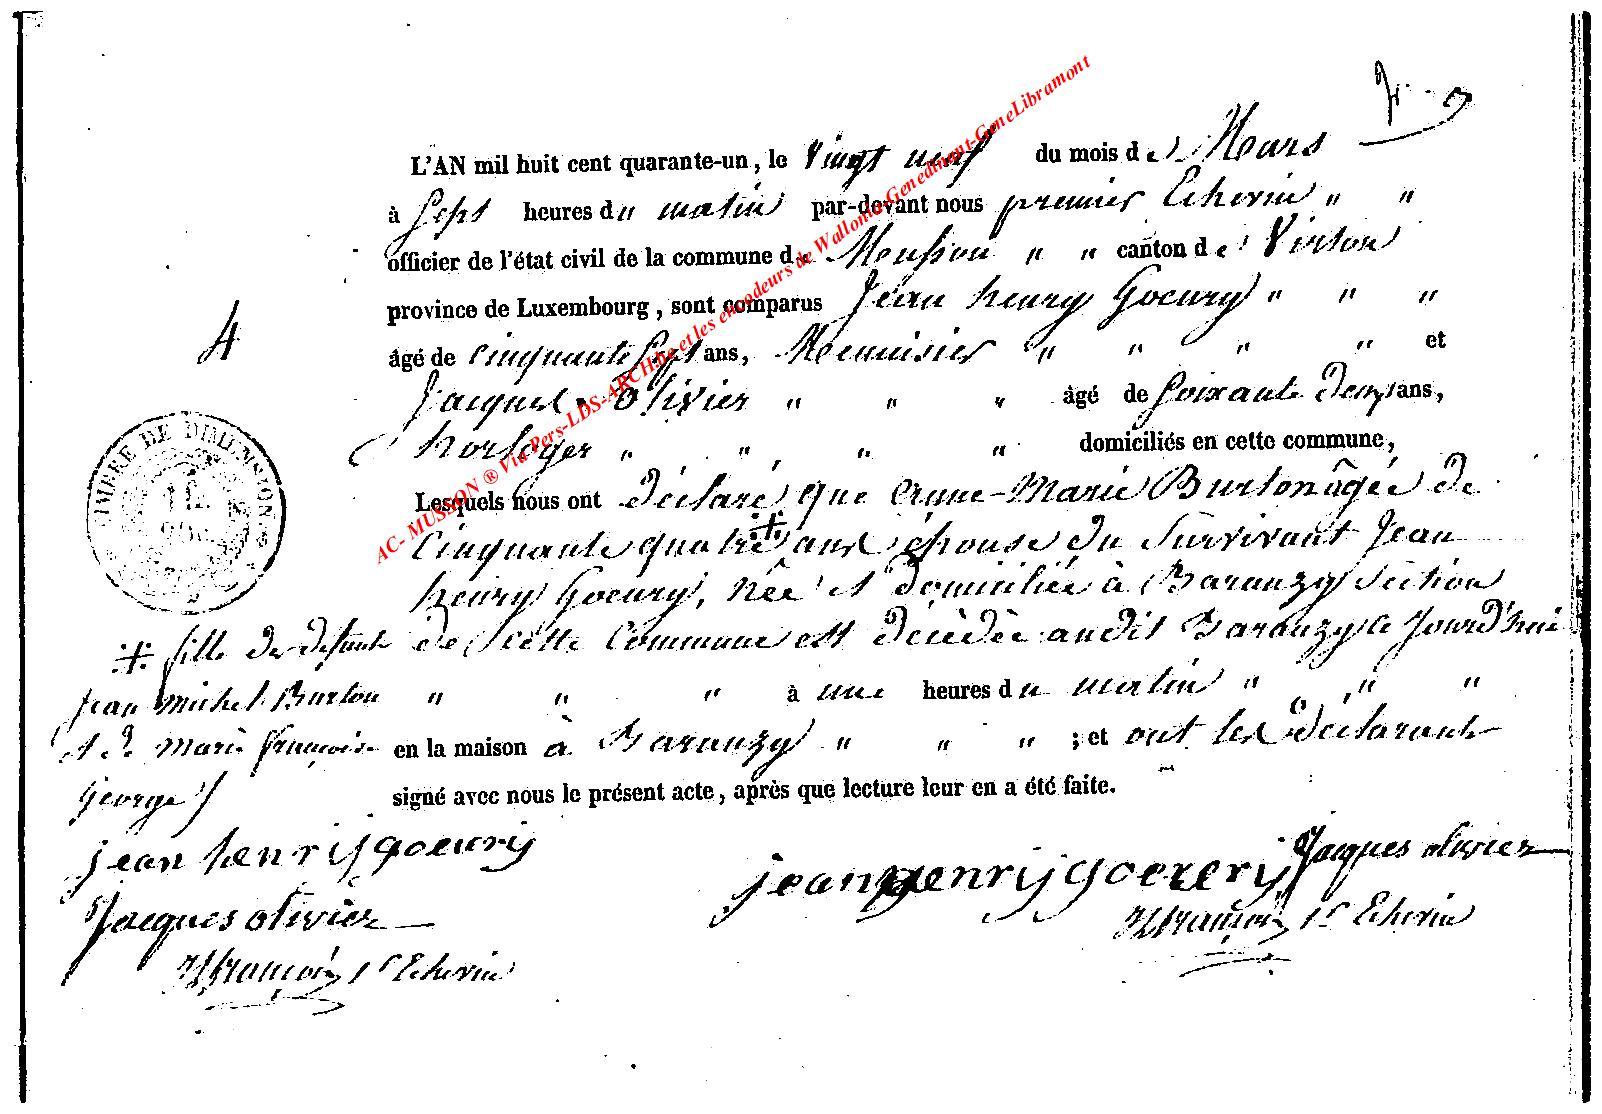 L'AN mil huit cent quarante-un, le Vingt neuf du mois de Mars
à Sept heures du matin par-devant nous premier Echevin " "
officier de l'état civil de la commune de Musson " " canton de Virton
province de Luxembourg, sont comparus Jean henry Goeury " " "
4
âgé de Cinquante Sept ans, Menuisier " " " " et
Jacques Olivier " " " âgé de Soixante Deux ans,
horloger " " " " domiciliés en cette commune,
Lesquels nous ont Déclaré que Anne-Marie Burton âgée de
Cinquante quatre ans épouse du Survivant Jean
henry Goeury, Née et Domiciliée à Baranzy Section
de cette Commune est Décédée audit Baranzy le Jourd'hui
" " " à une heures du matin " " "
en la maison à Baranzy " " " ; et ont les Déclarants
signé avec nous le présent acte, après que lecture leur en a été faite.
fille de défunts
Jean michel Burton
et de marie françoise
George
jean henrij goeurij
Jacques olivier
François 1r Echevin
jean henrij goeurij
Jacques olivier
François 1r Echevin
TIMBRE DE DIMENSION
AC- MUSSON ® Via Pers-LDS-ARCH.be et les encodeurs de Wallonia-Genedinant-GeneLibramont